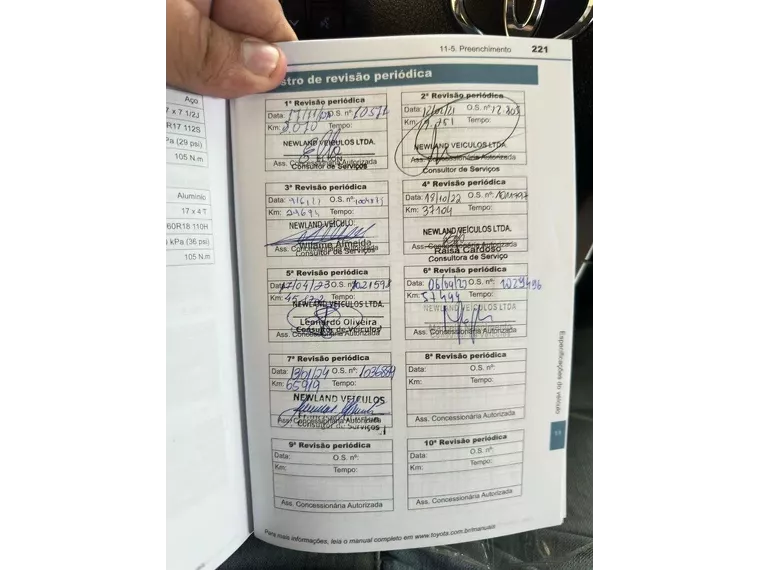 Aço
7 x 7 1/2J
R17 112S
Pa (29 psi)
105 N.m
Alumínio
17 x 4 T
60R18 110H
kPa (36 psi)
105 N.m
11-5. Preenchimento 221
stro de revisão periódica
1ª Revisão periódica
Data: O.S. nº:
Km: Tempo:
NEWLAND VEÍCULOS LTDA.
Ass. Concessionária Autorizada
Consultor de Serviços
2ª Revisão periódica
Data: O.S. nº:
Km: Tempo:
NEWLAND VEÍCULOS LTDA.
Ass. Concessionária Autorizada
Consultor de Serviços
3ª Revisão periódica
Data: O.S. nº:
Km: 29694 Tempo:
NEWLAND VEÍCULO
Willame Almeida
Ass. Concessionária Autorizada
Consultor de Serviços
4ª Revisão periódica
Data: 18/10/22 O.S. nº:
Km: 37104 Tempo:
NEWLAND VEÍCULOS LTDA.
Raisa Cardoso
Ass. Concessionária Autorizada
Consultora de Serviço
5ª Revisão periódica
Data: 17/04/23 O.S. nº: 1021598
Km: Tempo:
NEWLAND VEÍCULOS LTDA.
Leonardo Oliveira
Consultor de Veículos
Ass. Concessionária Autorizada
6ª Revisão periódica
Data: O.S. nº: 1029496
Km: 57494 Tempo:
NEWLAND VEÍCULOS LTDA
Ass. Concessionária Autorizada
7ª Revisão periódica
Data: O.S. nº:
Km: 65919 Tempo:
NEWLAND VEÍCULOS
Ass. Concessionária Autorizada
Consultor de Serviços
8ª Revisão periódica
Data: O.S. nº:
Km: Tempo:
Ass. Concessionária Autorizada
9ª Revisão periódica
Data: O.S. nº:
Km: Tempo:
Ass. Concessionária Autorizada
10ª Revisão periódica
Data: O.S. nº:
Km: Tempo:
Ass. Concessionária Autorizada
Especificações do veículo
Para mais informações, leia o manual completo em www.toyota.com.br/manuais